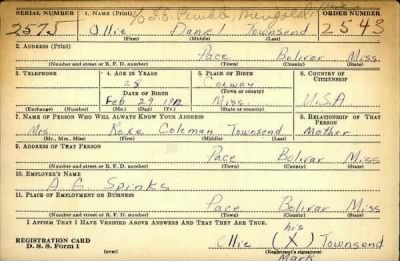 SERIAL NUMBER 1. NAME (Print) ORDER NUMBER
2575 Ollie Dane Townsend 2543
(First) (Middle) (Last)
2. ADDRESS (Print)
Pace Bolivar Miss.
(Number and street or R. F. D. number) (Town) (County) (State)
3. TELEPHONE 4. AGE IN YEARS 5. PLACE OF BIRTH 6. COUNTRY OF CITIZENSHIP
28
DATE OF BIRTH (Town or county)
Feb 29 1912 Miss. U.S.A
(Exchange) (Number) (Mo.) (Day) (Yr.) (State or country)
7. NAME OF PERSON WHO WILL ALWAYS KNOW YOUR ADDRESS 8. RELATIONSHIP OF THAT PERSON
Mrs. Roxe Coleman Townsend Mother
(Mr., Mrs., Miss) (First) (Middle) (Last)
9. ADDRESS OF THAT PERSON
Pace Bolivar Miss
(Number and street or R. F. D. number) (Town) (County) (State)
10. EMPLOYER'S NAME
A. G. Spinks
11. PLACE OF EMPLOYMENT OR BUSINESS
Pace Bolivar Miss
(Number and street or R. F. D. number) (Town) (County) (State)
I AFFIRM THAT I HAVE VERIFIED ABOVE ANSWERS AND THAT THEY ARE TRUE.
his
REGISTRATION CARD Ollie (X) Townsend
D. S. S. Form 1 (over) (Registrant's signature)
Mark